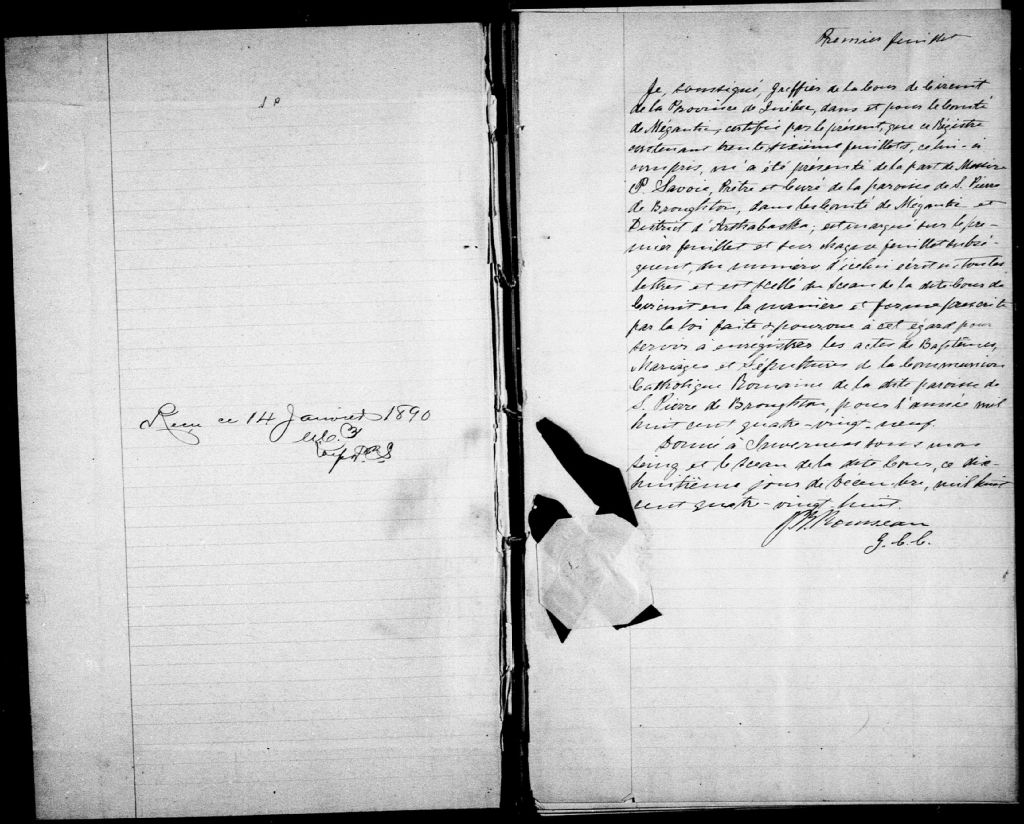 Reçu ce 14 Janvier 1890
Premier feuillet
Je, soussigné, Greffier de la Cour de Circuit
de la Province de Québec, dans et pour le Comté
de Mégantic, certifie par le présent, que ce Régistre
contenant trente sixième feuillets, celui-ci
compris, m'a été présenté de la part de Messire
P. Savoie, Prêtre et Curé de la paroisse de S. Pierre
de Broughton, dans les Comté de Mégantic et
District d'Arthabaska; est marqué sur le pre-
mier feuillet et sur chaque feuillet subsé-
quent, du numéro d'icelui écrit en toutes
lettres et est scellé du Sceau de la dite Cour de
Circuit en la manière et forme prescrite
par la loi faite & pourvue à cet égard pour
servir à enrégistrer les actes de Baptêmes,
Mariages et Sépultures de la Communion
Catholique Romaine de la dite paroisse de
S. Pierre de Broughton, pour l'année mil
huit cent quatre-vingt neuf.
Donné à Inverness sous mon
seing et le Sceau de la dite Cour, ce dix-
huitième jour de Décembre, mil huit
cent quatre-vingt huit.
Rousseau
G. C. C.